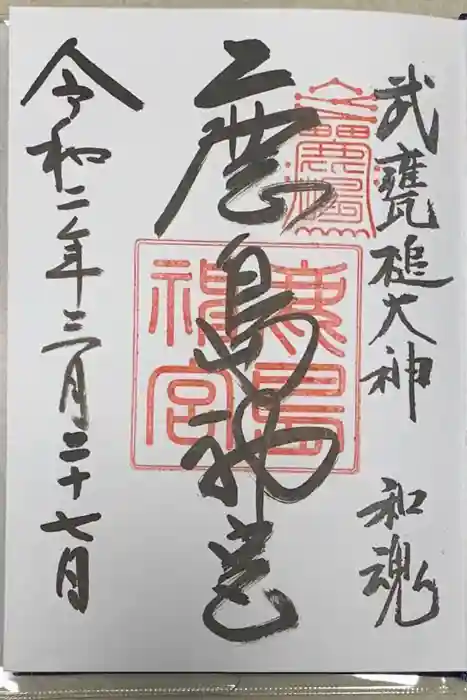 武甕槌大神 和魂
鹿島神宮
鹿島
神宮
令和二年三月二十七日